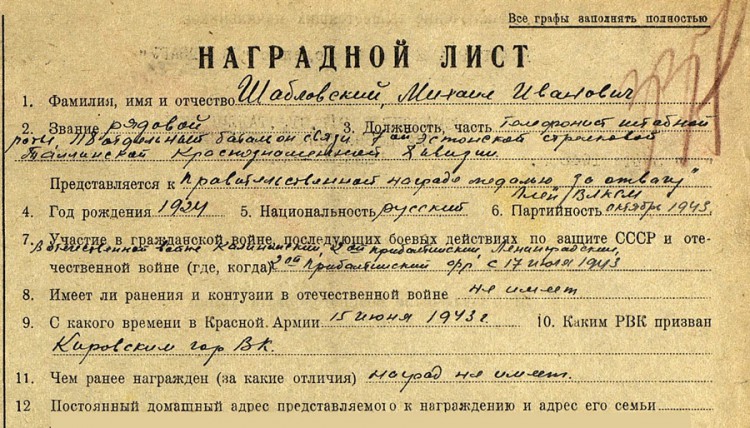 Все графы заполнять полностью
НАГРАДНОЙ ЛИСТ
1. Фамилия, имя и отчество Шабловский, Михаил Иванович
2. Звание рядовой 3. Должность, часть телефонист штабной
роты отдельный батальон связи 7ой Эстонской стрелковой
Таллинской Краснознаменной дивизии.
Представляется к правительственной награде медалью "за отвагу"
член ВЛКСМ
4. Год рождения 1924 5. Национальность русский 6. Партийность октября 1943.
7. Участие в гражданской войне, последующих боевых действиях по защите СССР и оте-
в отечественной войне Калининский 2ой прибалтийский Ленинградский
чественной войне (где, когда) 2ой Прибалтийский фр. с 17 июля 1943
8. Имеет ли ранения и контузии в отечественной войне не имеет
9. С какого времени в Красной Армии 15 июня 1943г. 10. Каким РВК призван
Кировским гор ВК.
11. Чем ранее награжден (за какие отличия) наград не имеет.
12 Постоянный домашный адрес представляемого к награждению и адрес его семьи